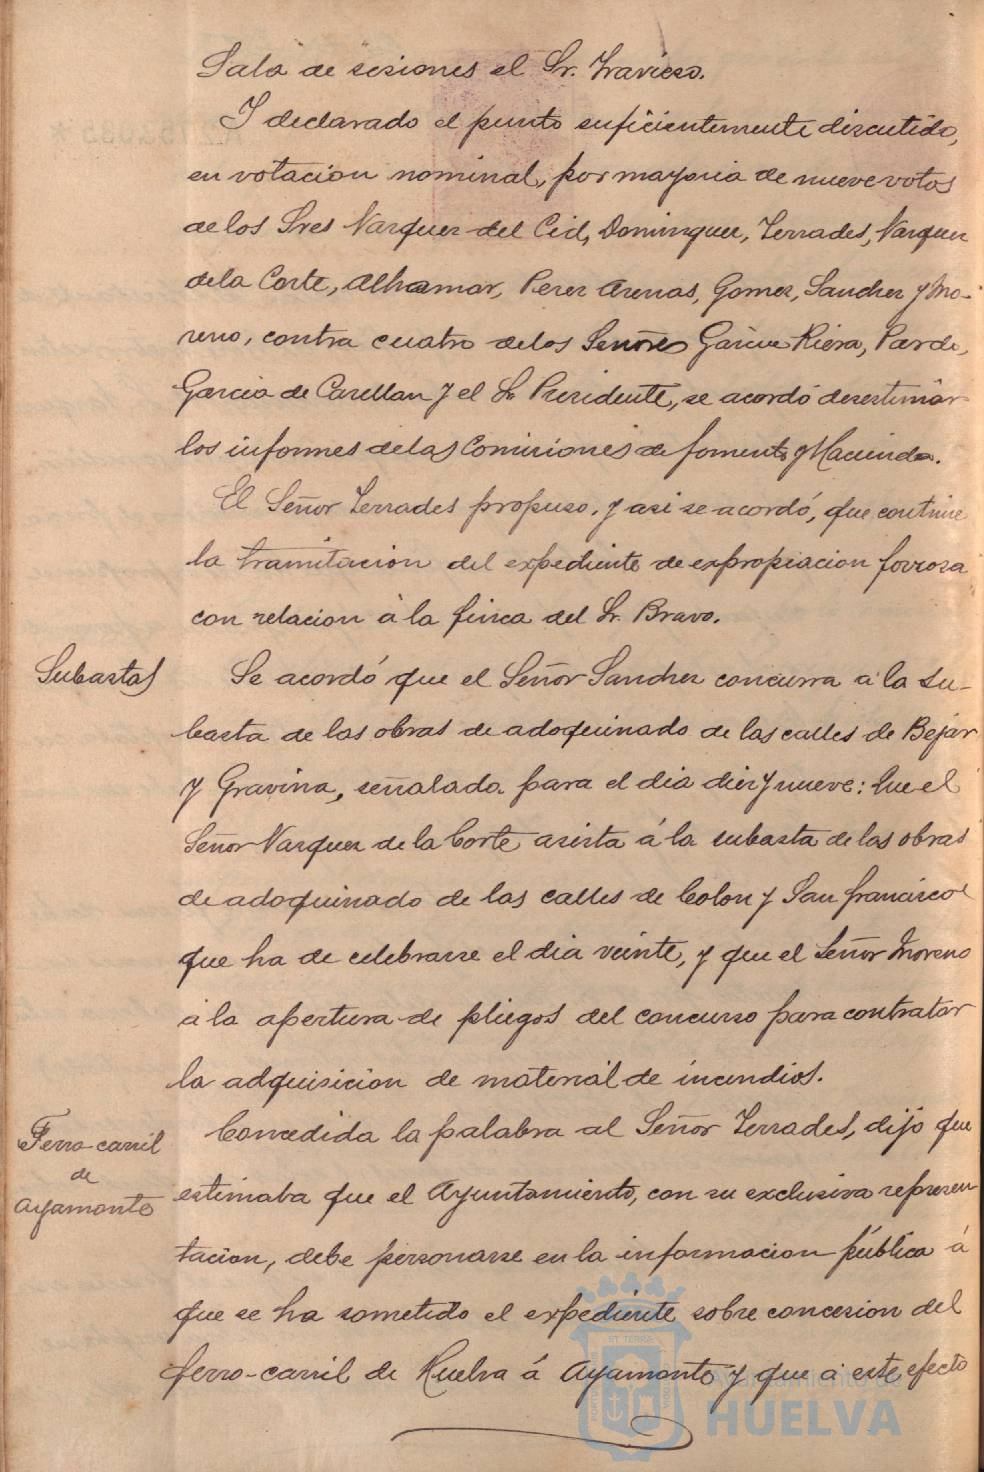 Sala de sesiones el Sr. Travieso.
Y declarado el punto suficientemente discutido,
en votacion nominal, por mayoria de nueve votos
de los Sres Vazquez del Cid, Dominguez, Terrades, Vazquez
de la Corte, Alhamar, Perez Arenas, Gomez, Sanchez y Mo-
reno, contra cuatro de los Señores Garcia Riera, Pardo,
Garcia de Casellan y el Sr Presidente, se acordó desestimar
los informes de las Comisiones de fomento y Hacienda.
El Señor Terrades propuso, y asi se acordó, que continue
la tramitacion del expediente de expropiacion forzosa
con relacion à la finca del Sr. Bravo.
Subastas
Se acordó que el Señor Sanchez concurra à la su-
basta de las obras de adoquinado de las calles de Bejar
y Gravina, señalada para el dia diez y nueve: Que el
Señor Vazquez de la Corte asista á la subasta de las obras
de adoquinado de las calles de Colon y San francisco
que ha de celebrarse el dia veinte, y que el Señor Moreno
á la apertura de pliegos del concurso para contratar
la adquisicion de material de incendios.
Ferro-carril
de
Ayamonte
Concedida la palabra al Señor Terrades, dijo que
estimaba que el Ayuntamiento, con su exclusiva represen-
tacion, debe personarse en la informacion pública á
que se ha sometido el expediente sobre concesion del
ferro-carril de Huelva á Ayamonte y que a este efecto
Ayuntamiento de
HUELVA